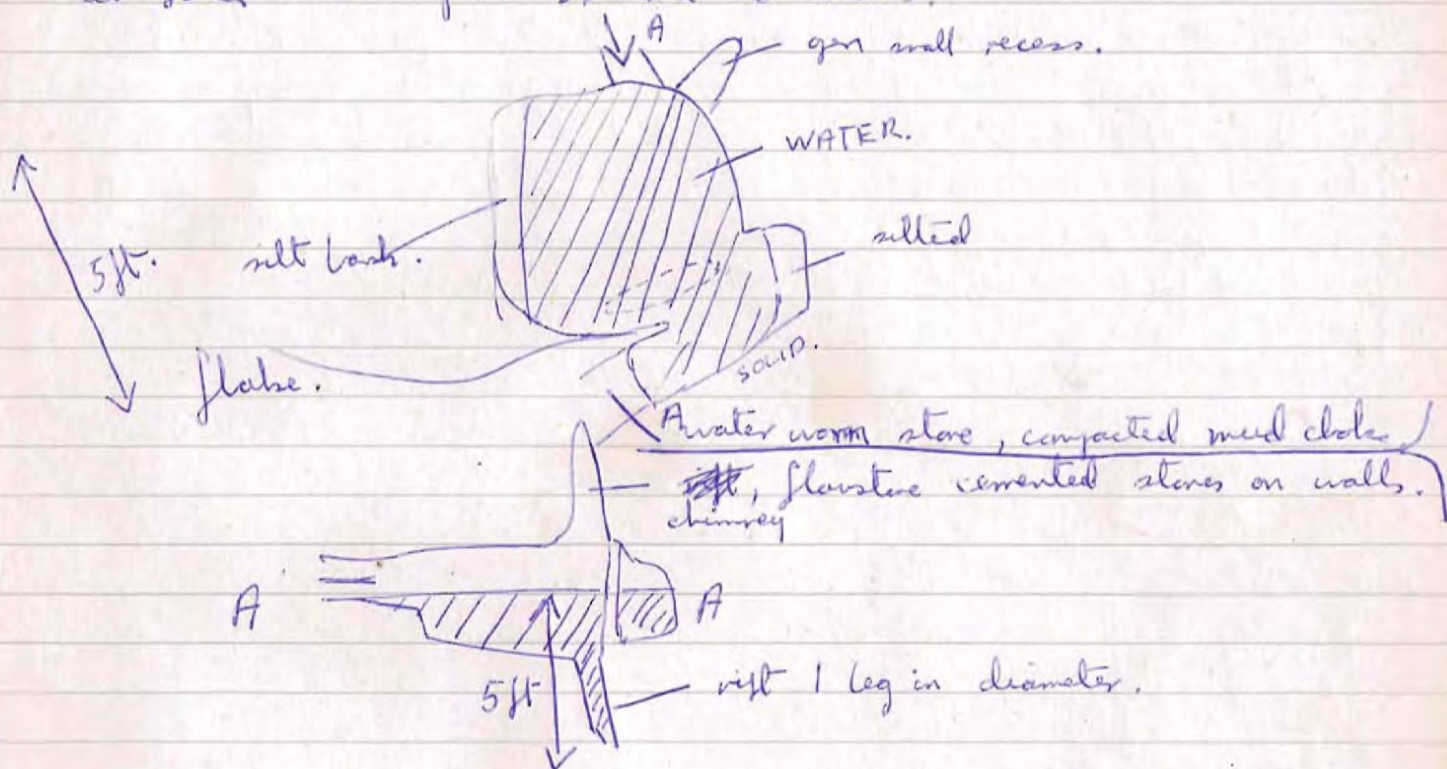 A
wall recess.
WATER.
silted
5ft. silt bank.
flake.
SOLID.
A water worn stone, compacted mud choke
flowstone cemented stones on walls.
chimney
A A
5ft rift 1 leg in diameter.